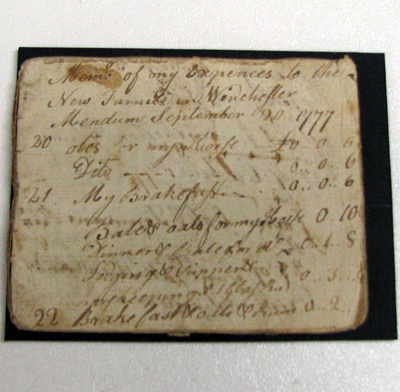 Memo of my Expences to the
New Furnis in Winchester
Mendum September 20 1777
20 oles for my Horse £0 0..6
Dito 0..0..6
21 My Brakefast 0..0..6
oals for my horse 0..10
Dinner & 0..1..8
Lodging & Supper 0..3..
keeping
22 Brakefast & 0..2..